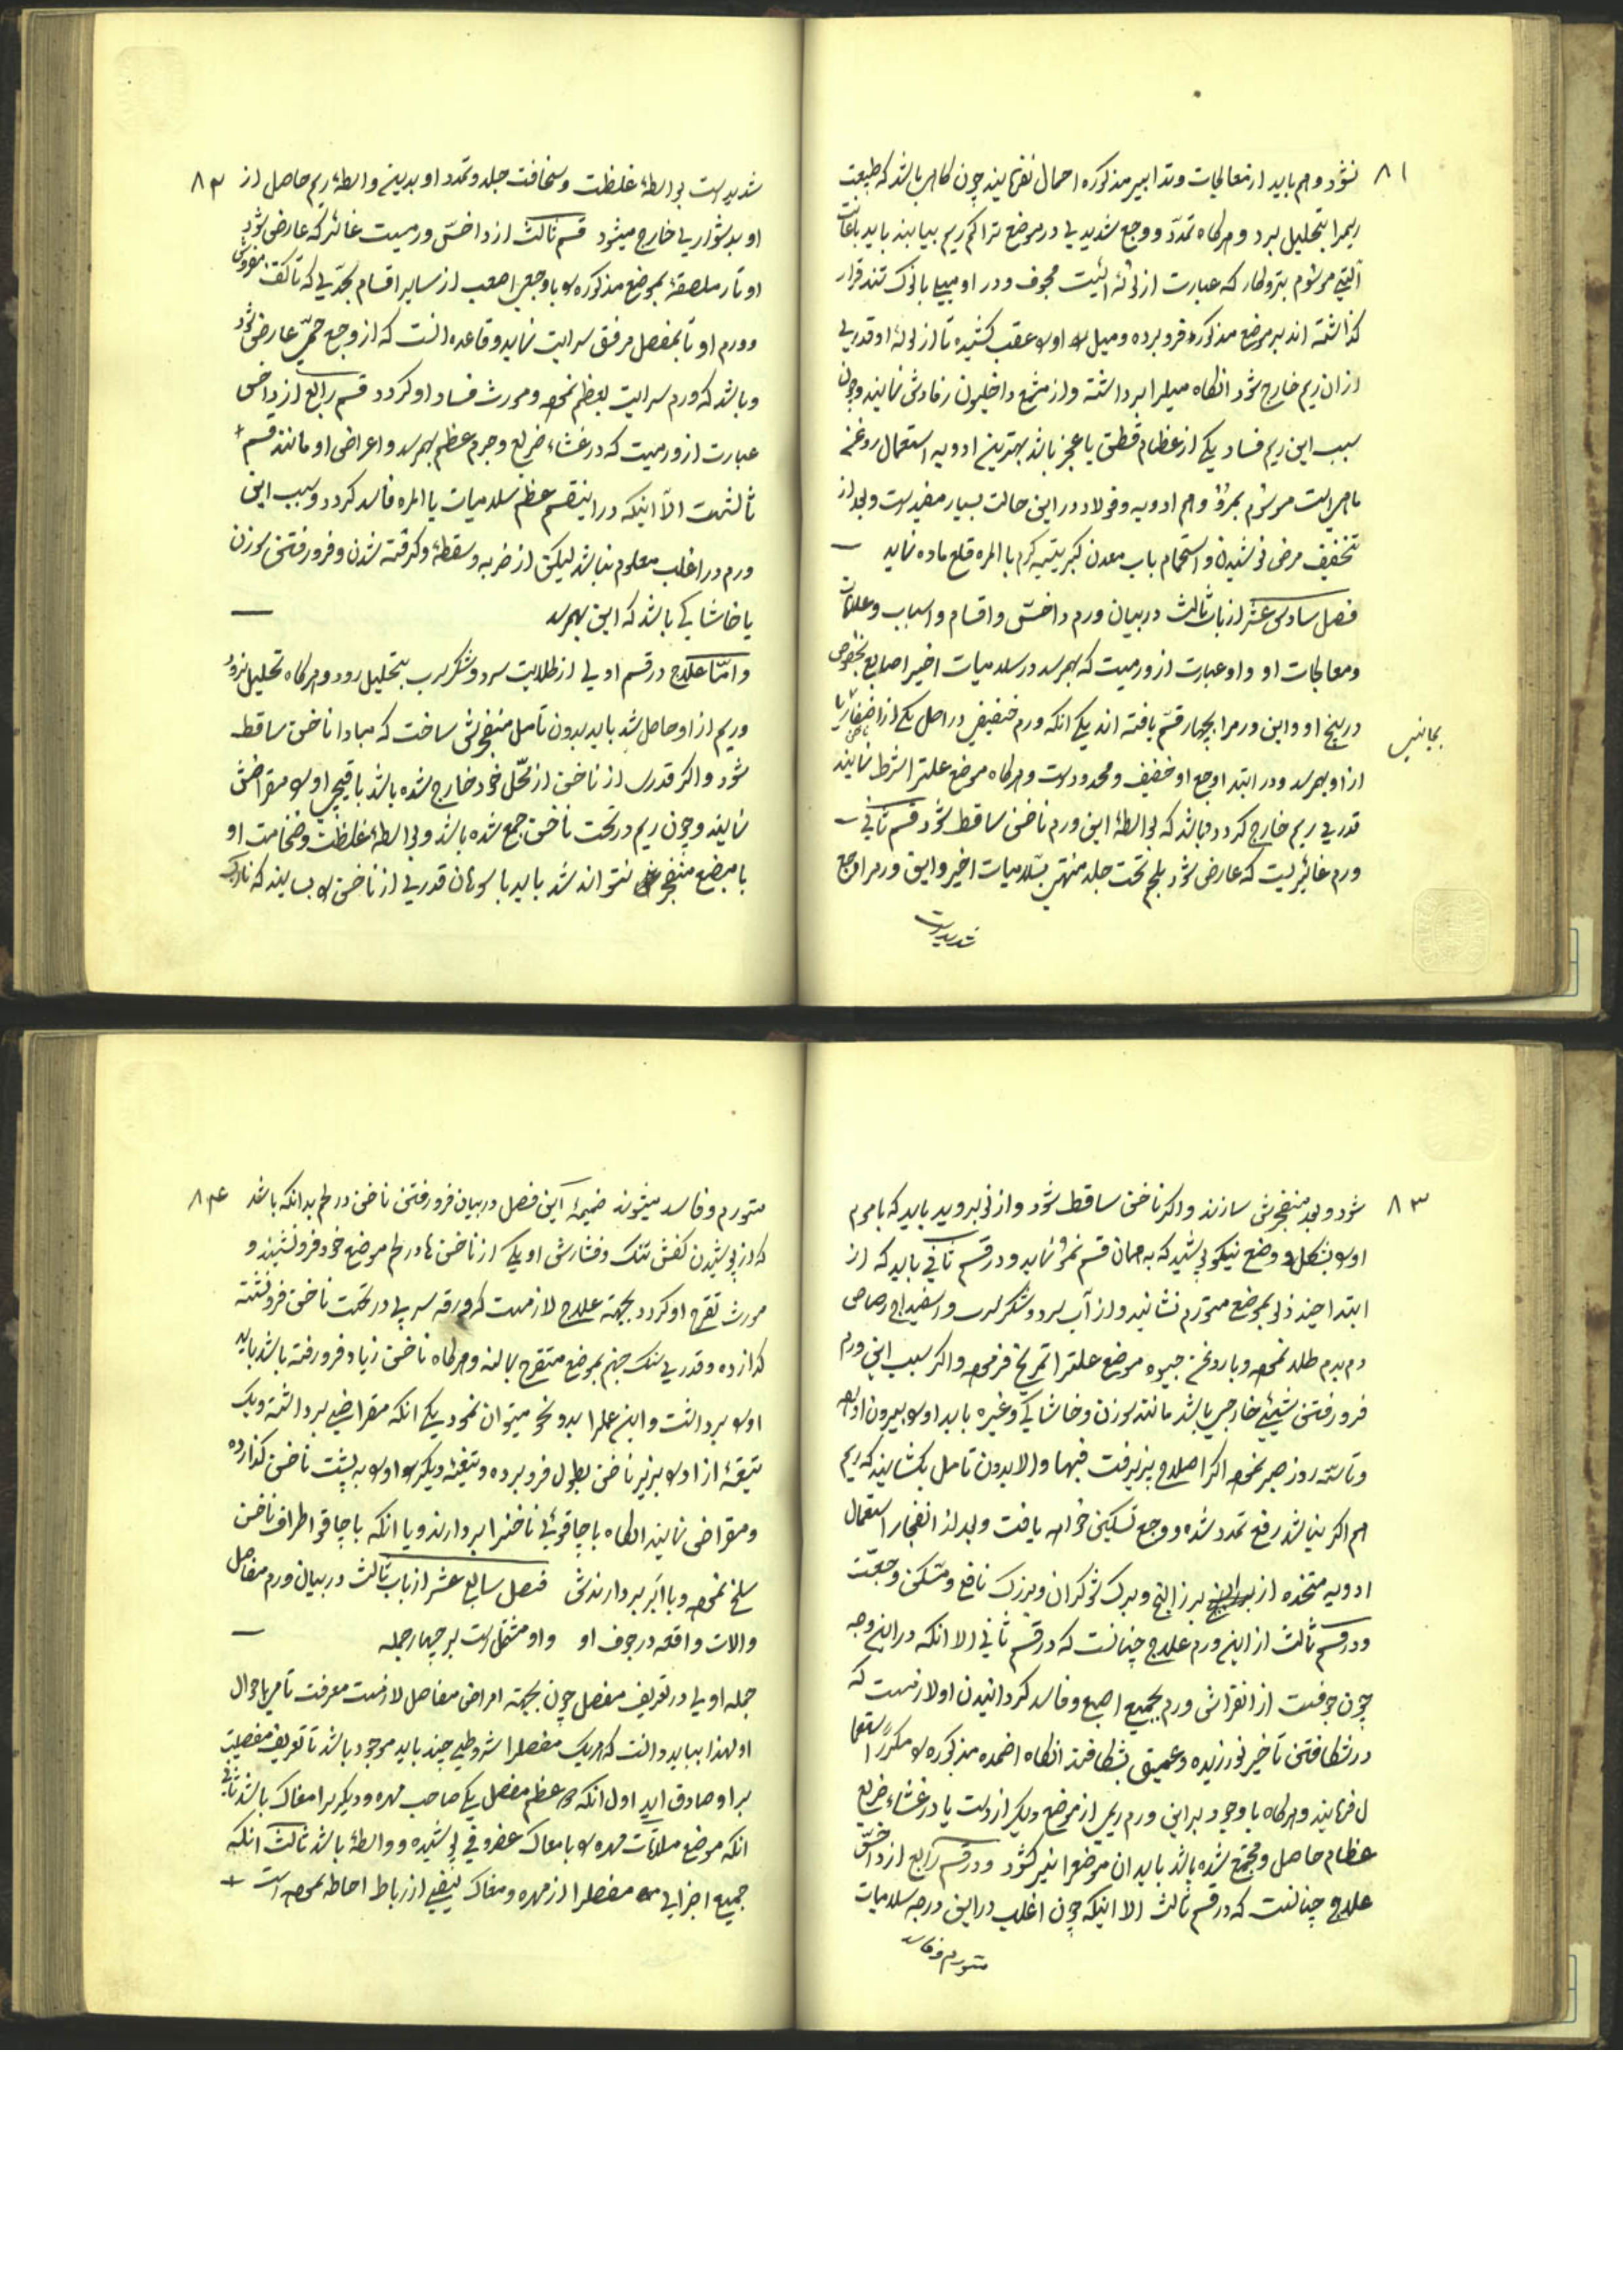 ۸۱
نشود و هم باید از معالجات و تدابیر مذکوره احمال نفرمایند چون گاهی باشد که طبیعت
ریمرا بتحلیل برد و هرگاه تمدّد و وجع شدیدی در موضع تراکم ریم بیابند باید باعانت
آلتی موسوم بتروکار که عبارت از لوله ایست مجوف و در او میلی با نوک تند قرار
گذاشته اند بر موضع مذکوره فرو برده و میل را او را عقب کشیده تا از لوله او قدری
از ان ریم خارج شود انگاه میلرا برداشته و از مشمع داخلیون زفادش نمایند و چون
سبب این ریم فساد یکی از عظام قطن یا عجز باشد بهترین ادویه استعمال روغن
ماهی است موسوم بمرو و هم ادویه و فولاد در این حالت بسیار مفید است و بعد از
تخفیف مرض نوشیدن و استحمام باب معدن کبریتیه گرم بالمره قلع ماده نماید
فصل سادس عشر از باب ثالث در بیان ورم داخس و اقسام و اسباب و علامات
و معالجات او و او عبارت از ورمیست که بهمرسد در سلامیات اخیر اصابع بخصوص
در بیخ او و این ورمرا بچهار قسم یافته اند یکی انکه ورم خفیفی در اصل یکی از اظفار یا
از او بهمرسد و در ابتدا وجع او خفیف و محدود است و هرگاه موضع علترا شرط نمایند
قدری ریم خارج گردد و باشد که بواسطه این ورم ناخن ساقط شود قسم ثانی
ورم غائریست که عارض شود بلحم تحت جلد منتهی بسلامیات اخیر و این ورمرا وجع
شدیدیست
۸۲
شدیدیست بواسطه غلظت و سخافت جلد و تمدد او بدین واسطه ریم حاصل از
او بدشواری خارج میشود قسم ثالث از داخس ورمیست غائر که عارض شود
اوتار ملصقه بموضع مذکوره را با وجعی اصعب از سایر اقسام بحدّی که تا کتف
و ورم او تا بمفصل مرفق سرایت نماید و قاعده انست که از وجع حمی عارض شود
و باشد که ورم سرایت بعظم نموده و مورث فساد او گردد قسم رابع از داخس
عبارت از ورمیست که در غشاء ضریع و جرم عظم بهمرسد و اعراض او مانند قسم
ثالثست الا اینکه در اینقسم عظم سلامیات بالمره فاسد گردد و سبب این
ورم در اغلب معلوم نباشد لیکن از ضربه و سقطه و کوفته شدن و فرو رفتن سوزن
یا خاشاکی باشد که این بهمرسد
و امّا علاج در قسم اولی از طلایت سرد و شکر سرب بتحلیل رود و هرگاه تحلیل نرود
و ریم از او حاصل شد باید بدون تامل منفجرش ساخت که مبادا ناخن ساقط
شود و اگر قدری از ناخن از محّل خود خارج شده باشد با قیچی او را مقراضش
نمایند و چون ریم در تحت ناخن جمع شده باشد و بواسطه غلظت و ضخامت او
با مبضع منفجر نتواند شد باید با سوهان قدری از ناخن را بسایند که نازک
۸۳
شود و بعد منفجرش سازند و اگر ناخن ساقط شود و از نو بروید باید که با موم
او را بشکل و وضع نیکو پوشید که به همان قسم نمو نماید و در قسم ثانی باید که از
ابتدا چند زلو بموضع متورم نشانید و از آب سرد و شکر سرب و اسفیداج رصاص
دم بدم طلا نموده و با روغن جیوه موضع علترا تمریخ فرموده و اگر سبب این ورم
فرو رفتن شیئی خارجی باشد مانند سوزن و خاشاکی و غیره باید او را بیرون اورده
و تا سه روز صبر نموده اگر اصلاح پزیرفت فبها و الا بدون تامل بکشایند که ریم
هم اگر نباشد رفع تمدد شده و وجع تسکین خواهد یافت و بعد از انفجار استعمال
ادویه متخذه از بزر البنج و برک شوکران و بزرک نافع و مسکن وجعست
و در قسم ثالث از این ورم علاج چنانست که در قسم ثانی الا انکه در این وجه
چون خوفست از انقراش ورم بجمیع اصبع و فاسد گردانیدن او لازمست که
در شکافتن تاخیر نورزیده و عمیق بشکافند انگاه اضمده مذکوره را مکرر استعما
ل فرمایند و هرگاه با وجود بر این ورم ریمی از موضع دیگر از دست یا در غشاء ضریع
عظام حاصل و مجتمع شده باشد باید ان موضع را نیز گشود و در قسم رابع از داخس
علاج چنانست که در قسم ثالث الا اینکه چون اغلب در این درجه سلامیات
متورم و فاسد
۸۴
متورم و فاسد میشوند ضمیمه این فصل در بیان فرو رفتن ناخن در لحم بدانکه باشد
که از پوشیدن کفش تنگ و فشارش او یکی از ناخن ها در لحم موضع خود فرو نشیند و
مورث تقرح او گردد بجهته علاج لازمست که ورقه سربی در تحت ناخن فرو نشسته
گذارده و قدری سنگ جهنم بموضع متقرح بمالند و هرگاه ناخن زیاد فرو رفته باشد باید
او را برداشت و این عملرا بدو نحو میتوان نمود یکی انکه مقراضی برداشته و یک
تیغه از او را بزیر ناخن بطول فرو برده و تیغه دیگر را او را به پشت ناخن گذارده
و مقراض نمایند انگاه با چاقوئی ناخنرا بردارند و یا انکه با چاقو اطراف ناخن
سلخ نموده و با انبر بردارندش فصل سابع عشر از باب ثالث در بیان ورم مفاصل
و الات واقعه در جوف او و او مشتمل است بر چهار جمله
جمله اولی در تعریف مفصل چون بجهته امراض مفاصل لازمست معرفت تامی باحوال
او لهذا بباید دانست که هریک مفصلرا شروطی چند باید موجود باشد تا تعریف مفصلیت
بر او صادق اید اول انکه دو عظم مفصل یکی صاحب مهره و دیگریرا مغاک باشد ثانی
انکه موضع ملاقات مهره را با مغاک غضروفی پوشیده و واسطه باشد ثالث انکه
جمیع اجزای مفصلرا از مهره و مغاک لیفی از رباط احاطه نموده است